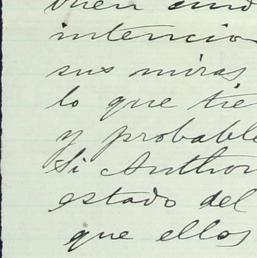 buen
intencio
sus miras
lo que tie
y probable
Si Anthon
estado del
que ellos